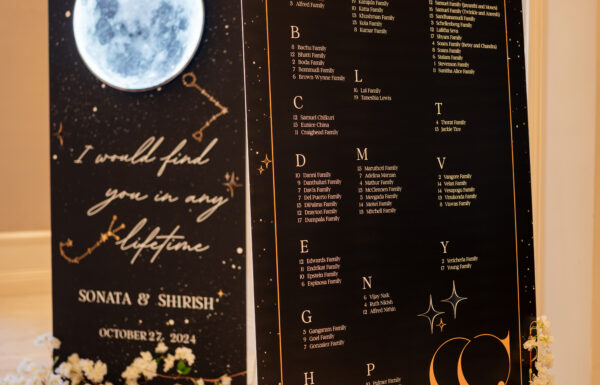 I would find
you in any
lifetime
SONATA & SHIRISH
OCTOBER 27, 2024
3 Alfred Family
B
8 Bachu Family
12 Bhatti Family
2 Boda Family
7 Bommudi Family
6 Brown Wynne Family
C
12 Samuel Chilkuri
15 Eunice China
11 Craighead Family
D
10 Danni Family
9 Dantuluri Family
7 Davis Family
7 Del Puerto Family
13 DiPalma Family
12 Drayton Family
17 Dumpala Family
E
12 Edwards Family
11 Endrikar Family
10 Epstein Family
6 Espinosa Family
G
5 Gangaram Family
9 Goel Family
7 Gonzalez Family
H
10 Katta Family
13 Khushman Family
13 Kola Family
8 Kumar Family
L
16 Lal Family
19 Taneshia Lewis
M
15 Maruthoti Family
7 Adelina Mernan
4 Mathur Family
13 McClemens Family
5 Mergada Family
14 Meier Family
13 Mitchell Family
N
6 Vijay Naik
4 Ruth Nikosh
12 Alfred Nithin
P
10 Palmer Family
12 Samuel Family
16 Samuel Family
13 Sandhanamudi Family
3 Schellenberg Family
12 Lalitha Seva
17 Shyam Family
4 Soans Family
8 Soans Family
6 Stalam Family
1 Stevenson Family
11 Sunitha Alice Family
T
4 Thorat Family
13 Jackie Tize
V
2 Vangore Family
14 Velan Family
14 Vesapogu Family
13 Vinukonda Family
8 Viswas Family
Y
2 Yericherla Family
17 Young Family